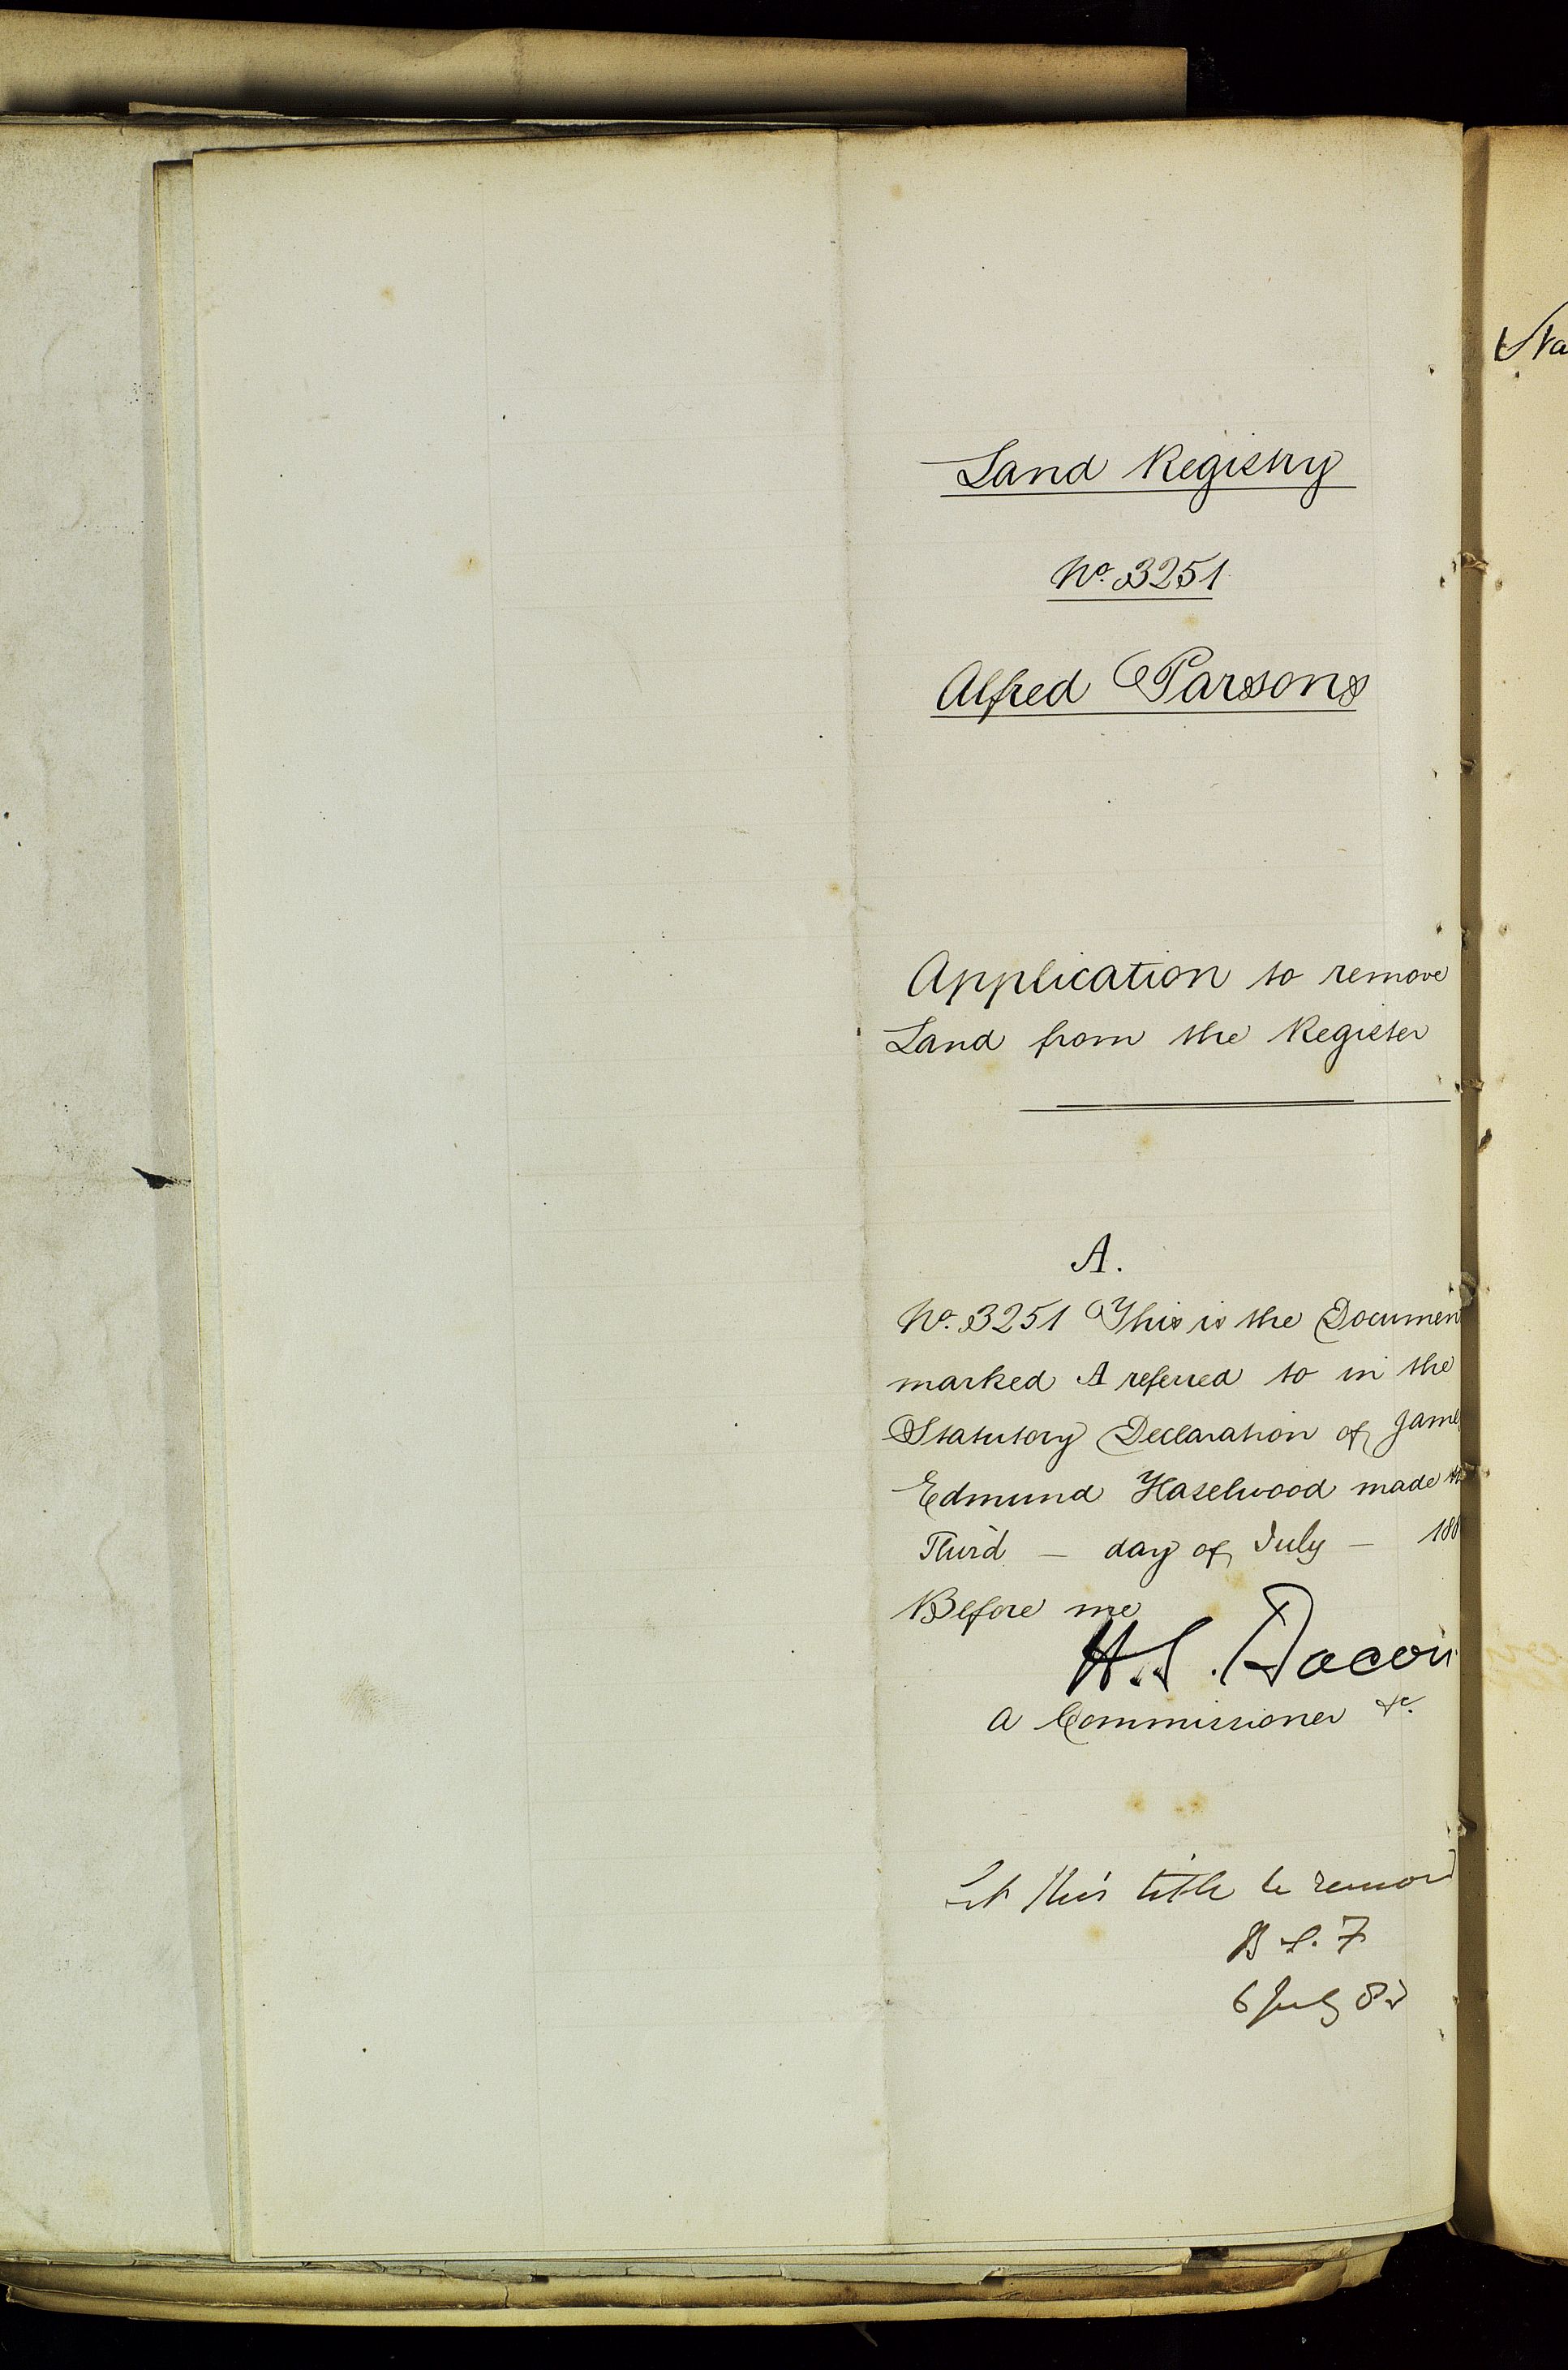 Land Registry
No. 3251
Alfred Parsons
Application to remove
Land from the Register
A.
No. 3251 This is the Documen
marked A referred to in the
Statutory Declaration of Jame
Edmund Haselwood made th
Third — day of July — 188
Before me
H.S.
A Commissioner &c.
Let this title be removd
6 July 83